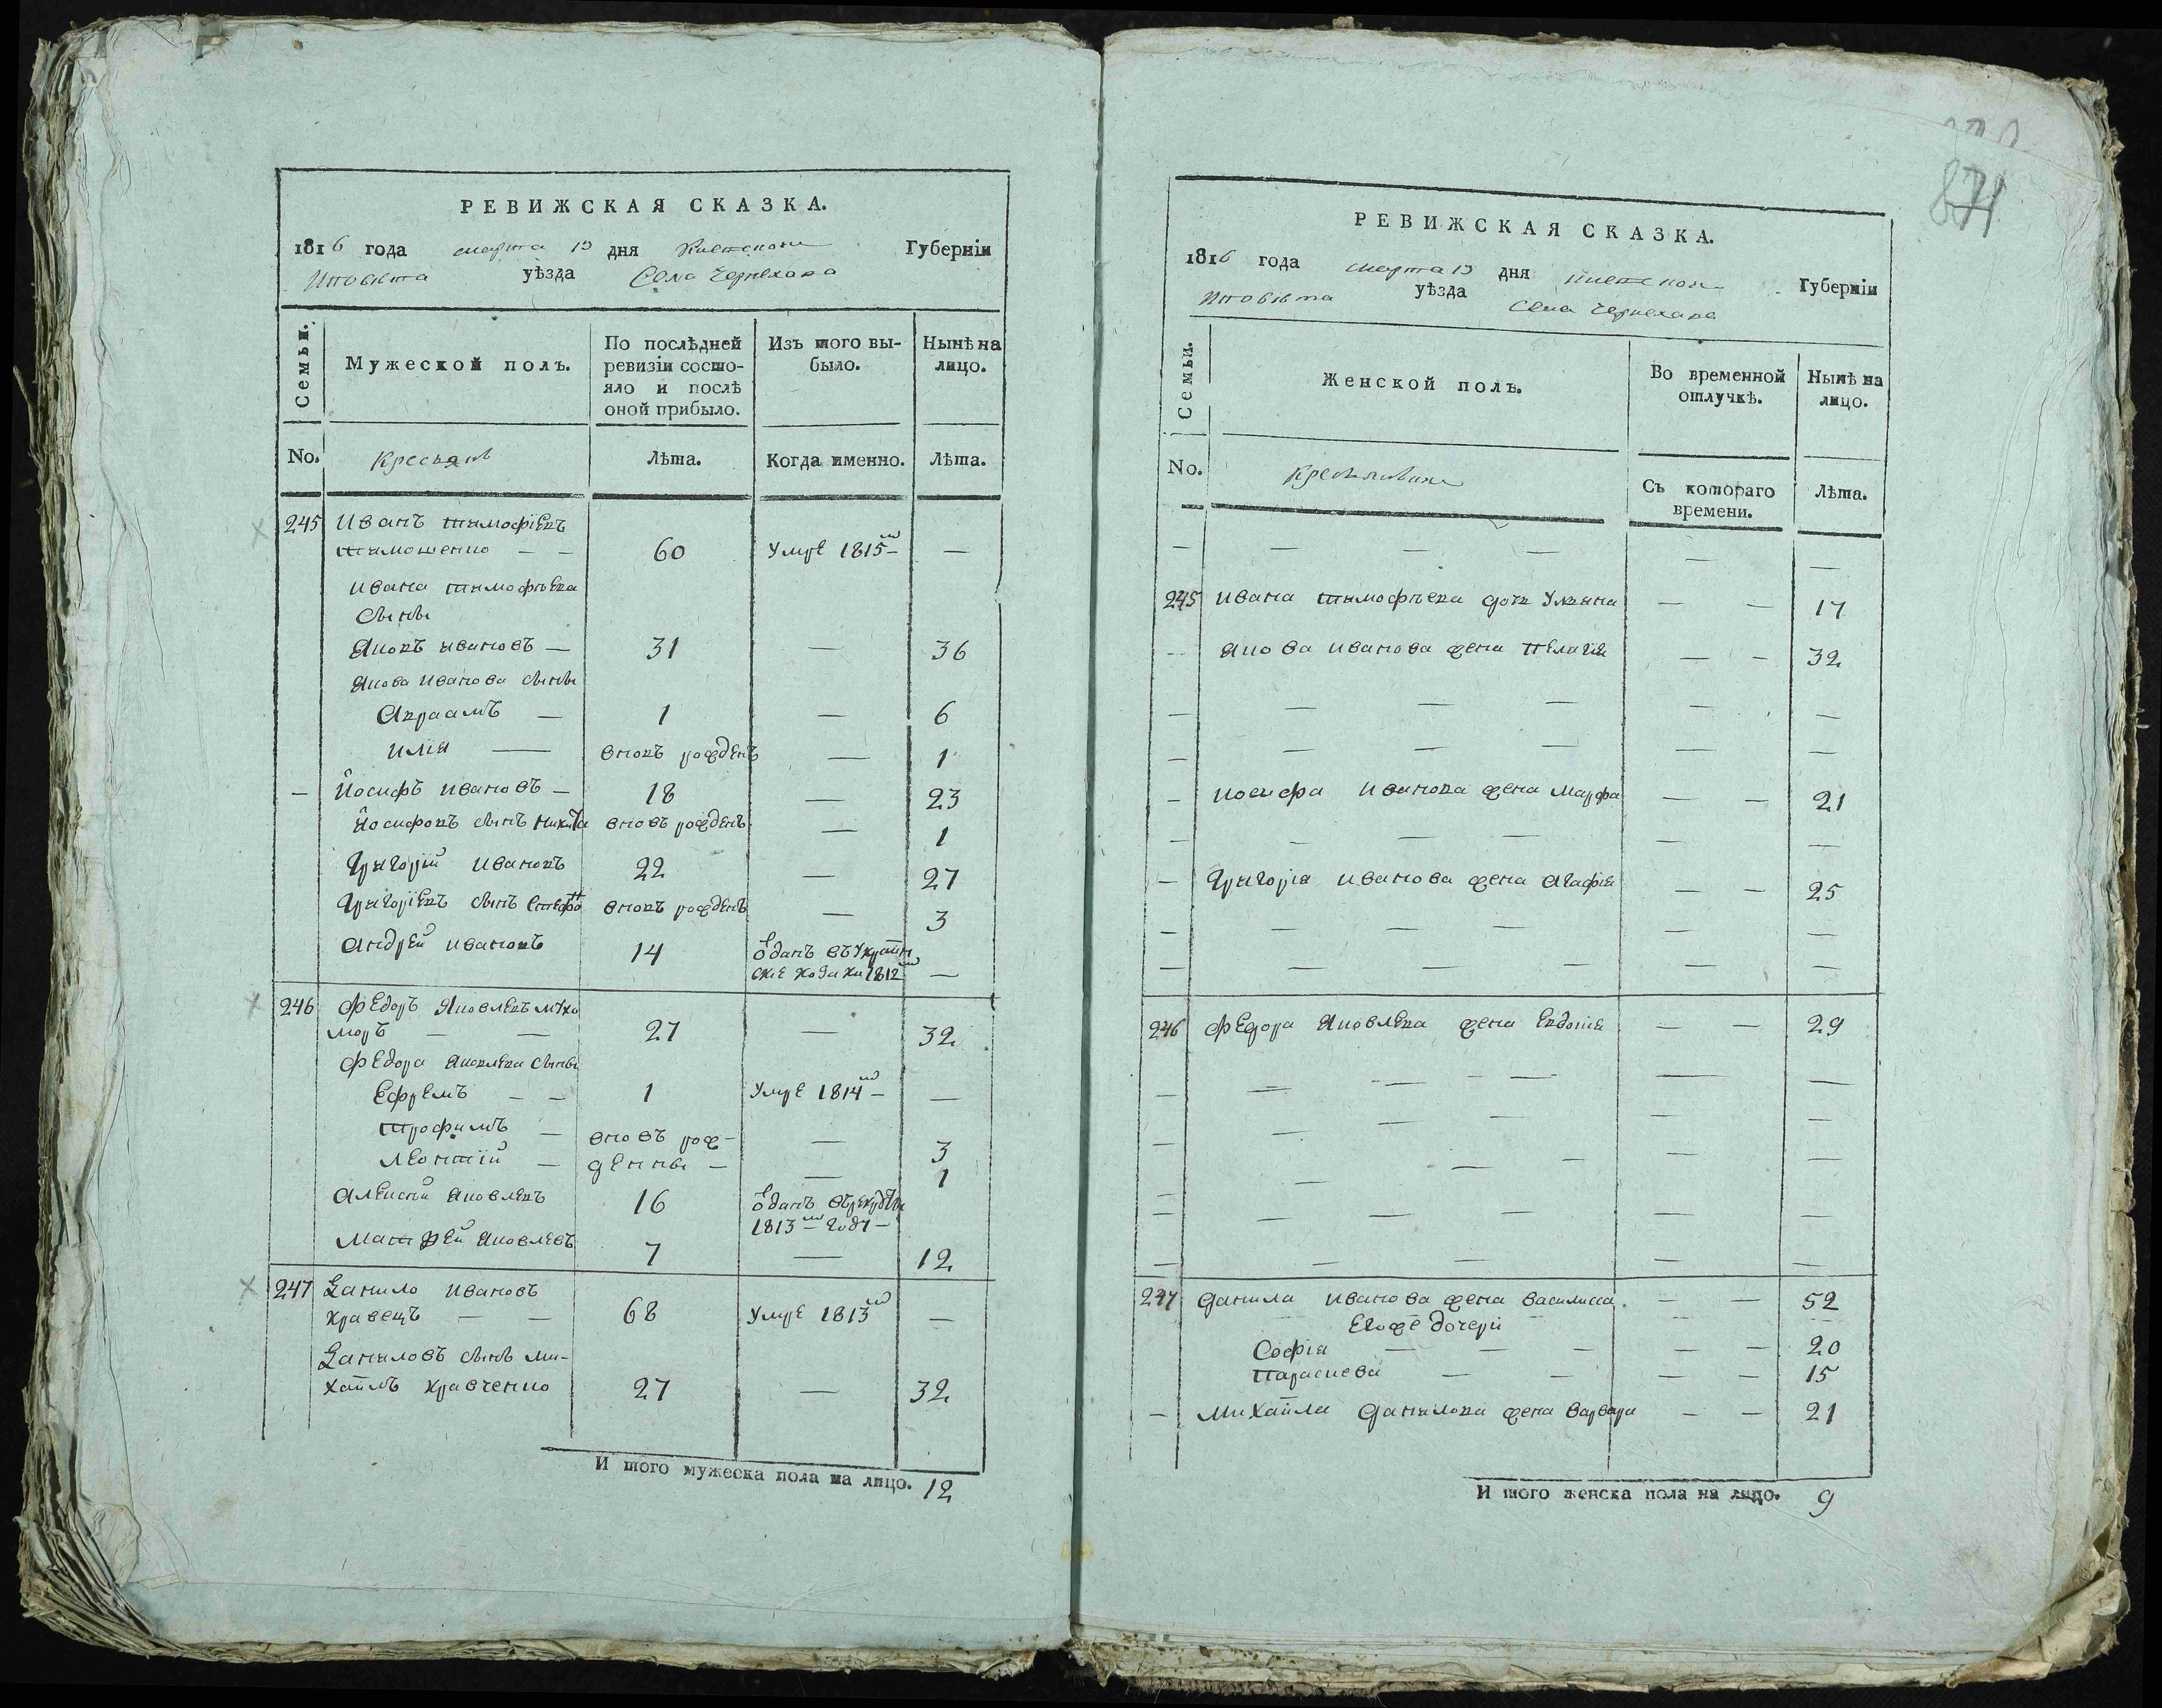 РЕВИЖСКАЯ СКАЗКА.
1816 года марта 13 дня Киевской Губерніи
уѣзда Села Черняхова
Семьи.
Мужеской полъ.
По послѣдней
ревизіи состо-
яло и послѣ
оной прибыло.
Изъ того вы-
было.
Нынѣ на
лицо.
No. Кресьянѣ Лѣта. Когда именно. Лѣта.
245 Иванъ Тимофіевъ
Тимошенко — — 60 Умре 1815го — —
Ивана Тимофѣева
Сыны
Яковъ Ивановъ — 31 — 36
Якова Иванова сыны
Авраамъ — 1 — 6
Илія — вновъ рожденъ — 1
— Іосифъ Ивановъ — 18 — 23
Іосифовъ сынъ Никита вновъ рожденъ — 1
Григорій Ивановъ 22 — 27
Григоріевъ сынъ Стефанъ вновъ рожденъ — 3
Андрей Ивановъ 14 Отданъ въ Украин
ские козаки 1812го —
246 Федоръ Яковлевъ Мухо
моръ — — 27 — 32
Федора Яковлева сыны
Ефремъ — — 1 Умре 1814го — —
Трофимъ — вновъ рож- — 3
Леонтій — денны — — 1
Алексѣй Яковлевъ 16 Отданъ въ рекруты
1813го году —
Матфей Яковлевъ 7 — 12
247 Данило Ивановъ
Кравецъ — — 68 Умре 1813го —
Даниловъ сынъ Ми-
хаилъ Кравченко 27 — 32
И того мужеска пола на лицо. 12
871
РЕВИЖСКАЯ СКАЗКА.
1816 года марта 13 дня Киевской Губерніи
уѣзда Села Черняхова
Семьи.
Женской полъ.
Во временной
отлучкѣ.
Нынѣ на
лицо.
No. Съ котораго
времени. Лѣта.
245 Ивана Тимофѣева дочь Улияна — — 17
Якова Иванова жена Пелагия — — 32
— Иосифа Иванова жена Марфа — — 21
— Григорія Иванова жена Агафія — — 25
246 Федора Яковлева жена Евдокія — — 29
247 Данила Иванова жена Василисса — — 52
Егоже дочери
Софія — — — — — 20
Параскева — — — — 15
— Михаила Данилова жена Варвара — — 21
И того женска пола на лицо. 9